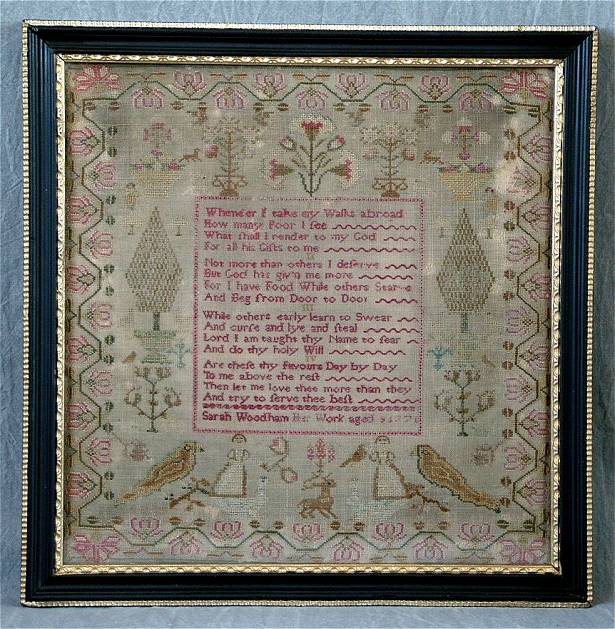 Whene'er I take my Walks abroad
How many Poor I ſee
What ſhall I render to my God
For all his Gifts to me
Not more than others I deſerve
But God has giv'n me more
For I have Food While others Starve
And Beg from Door to Door
While others early learn to Swear
And curſe and lye and ſteal
Lord I am taught thy Name to fear
And do thy holy Will
Are theſe thy Favours Day by Day
To me above the reſt
Then let me love thee more than they
And try to ſerve thee beſt
Sarah Woodham Her Work aged